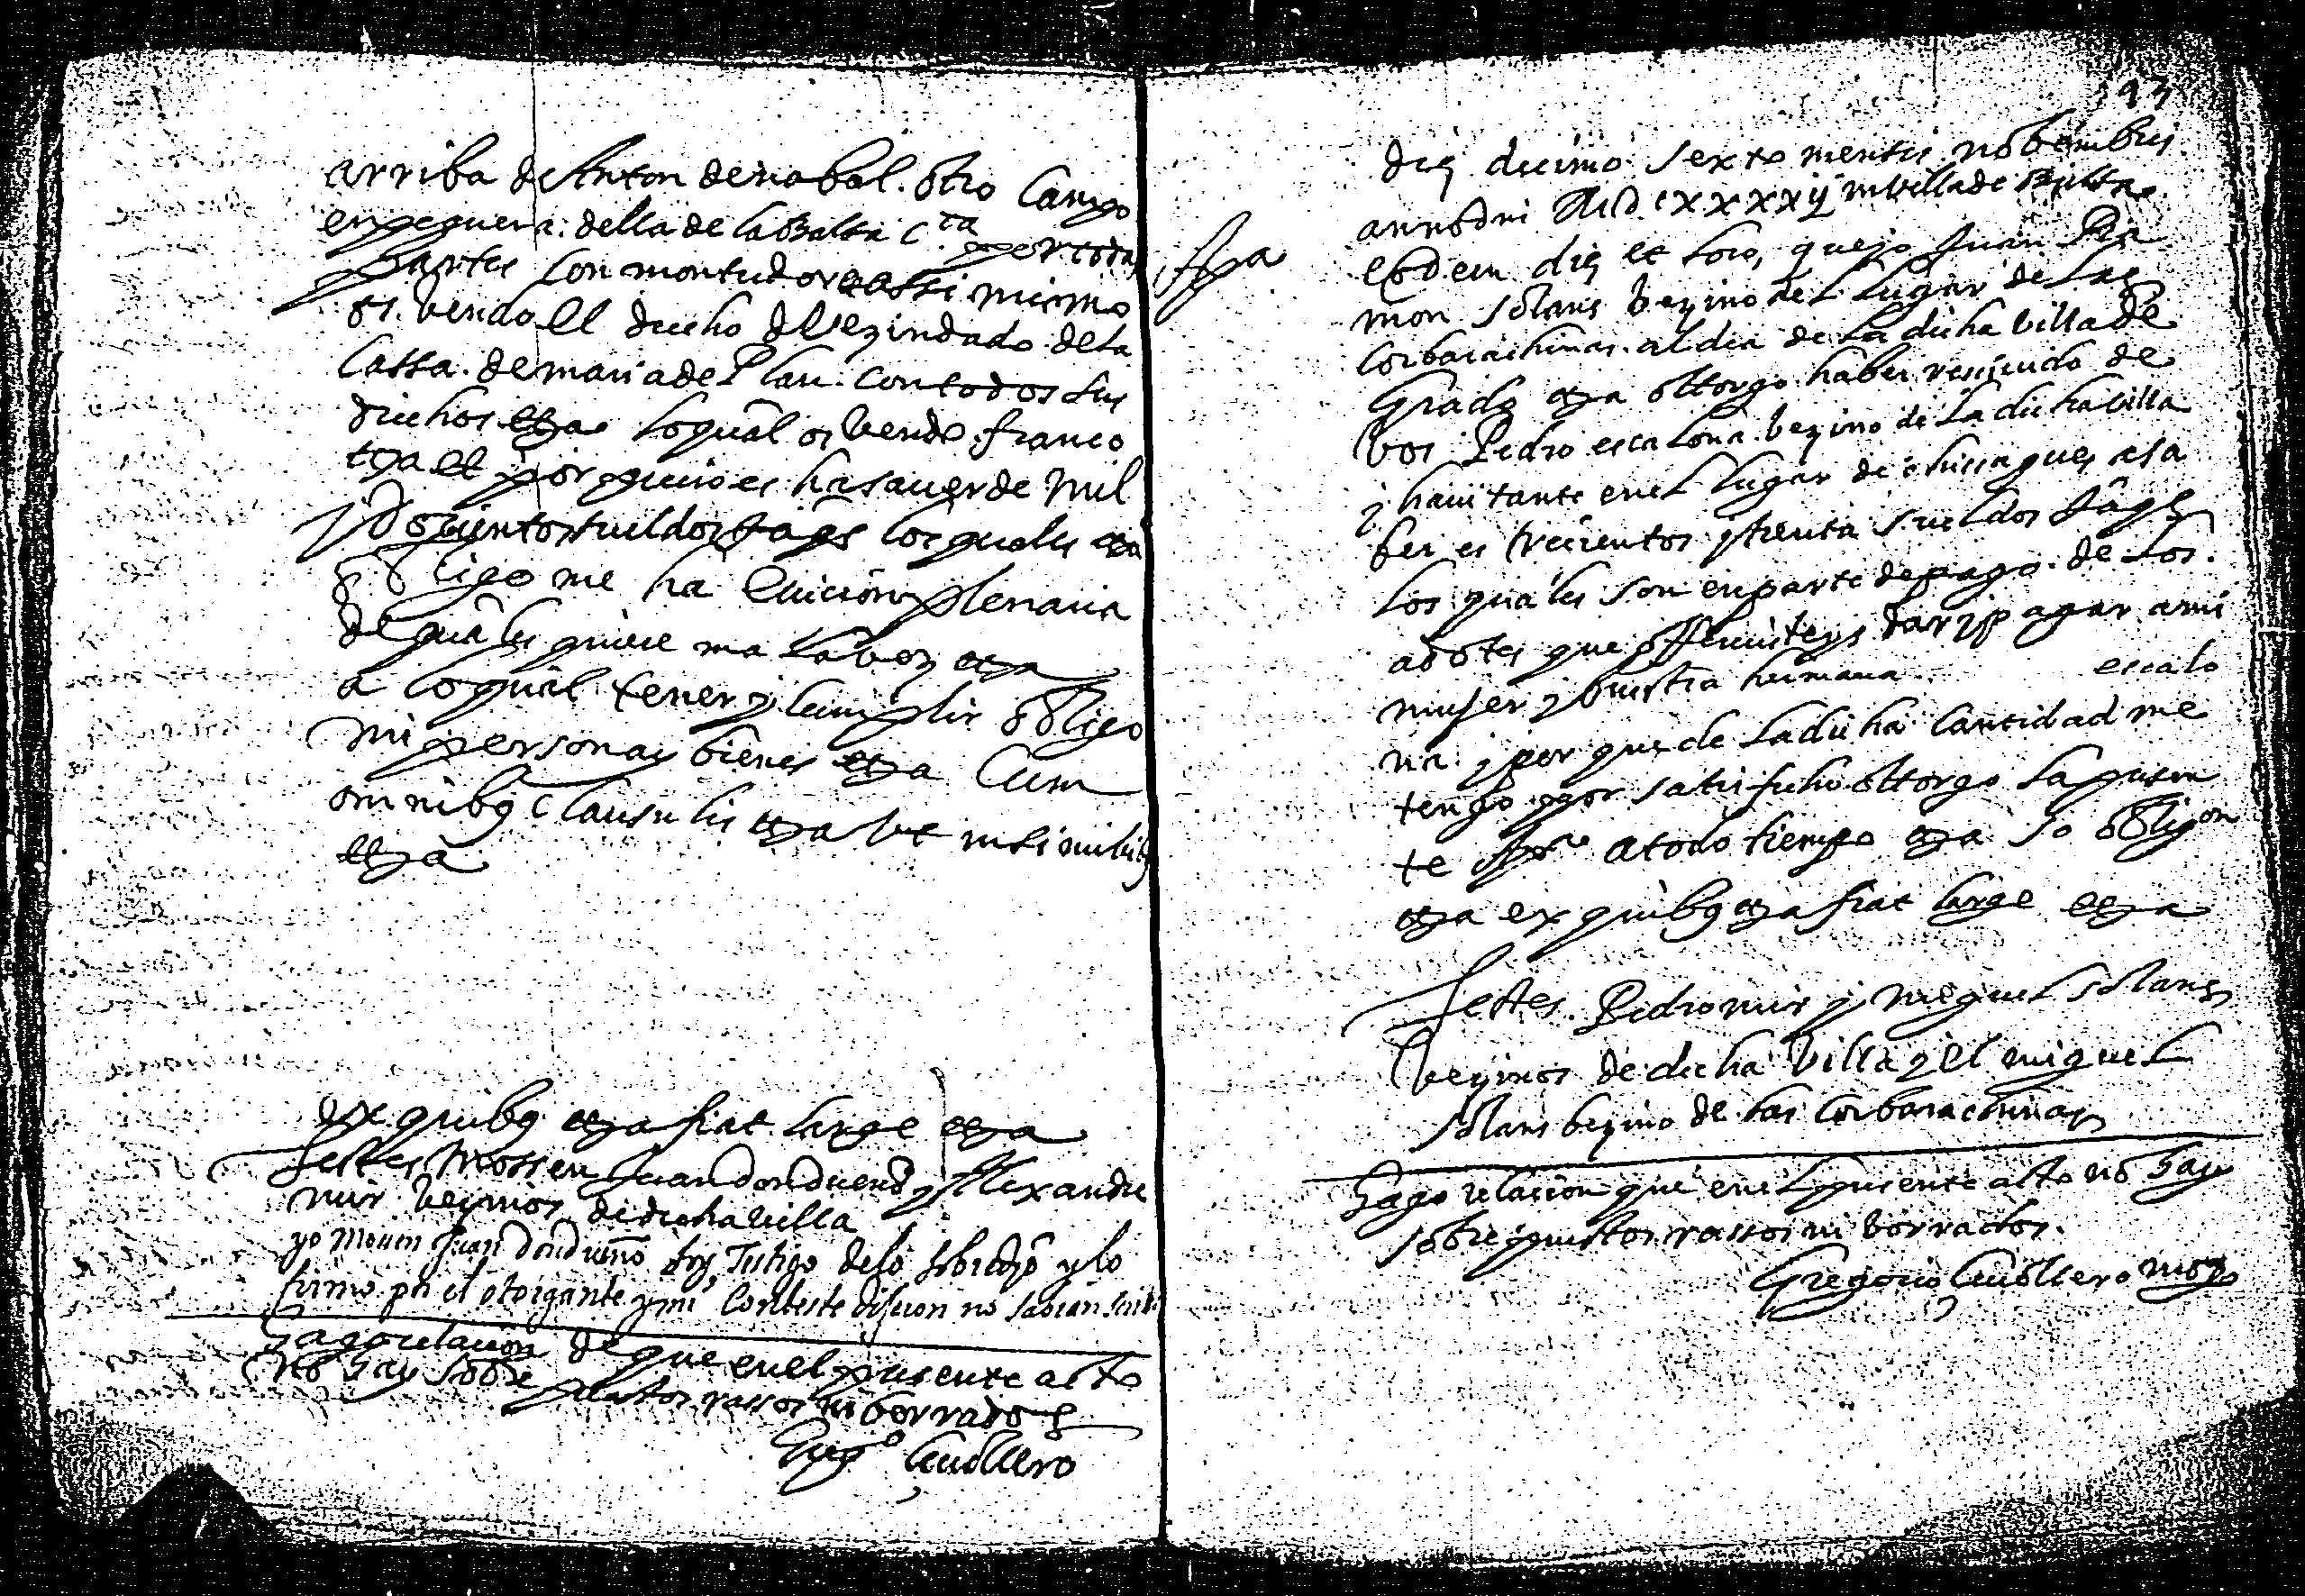 arriba de Anton de nabal. otro Campo
en peguera. della de la Balssa C.ta por todas
partes con montudor assi mismo
os. bendo el drecho del vezindado de la
Cassa. de maria de Plan. con todos sus
drechos etza lo qual os bendo. franco
etza et por precio es ha sauer de mil
y Docientos sueldos Jaqs los quales etza
obligo me ha euicion plenaria
de quales quiere mala boz etza
a lo qual tener y cumplir obligo
mi persona y bienes etza Cum
omnibq Clausulis etza ut in similibq
etza
ex quibq etza fiat large etza
Testes Mossen Juan dondueno y Alexandre
mir bezinos de dicha billa
yo mossen Juan Dondueño soy Testigo de lo sobredho y lo
firmo por el otorgante y mi Conteste dixeron no sabian scribir
Hago relacion de que en el presente acto
no hay sobre puestos rassos ni borrados
Grego Cuollero
193
die decimo sexto mensis nobembris
anno dni MDCxxxxij in billa de
Apca
eodem die et loco, que yo Juan Ra
mon solans bezino del lugar de las
Corbarachinas. al dia de la dicha billa de
Grado etza ottorgo haber reciuido de
bos Pedro escalona. bezino de la dicha billa
y hauitante en el lugar de que es asa
ber es trecientos y trenta sueldos Jaqs
los quales son en parte de pago. de los.
adotes que offrecisteys dar y pagar a mi
mujer y buestra hermana escalo
na. y por que de la dicha Cantidad me
tengo por satisfecho ottorgo la presen
te Apca a todo tiempo etza so obligon
etza ex quibq etza fiat large etza
Testes. Pedro mir y miguel solans
bezinos de dicha billa y el miguel
solans bezino de las Corbarachinas
Hago relacion que en el presente acto no hay
sobrepuestos rassos ni borrados.
Gregorio Cuollero nots